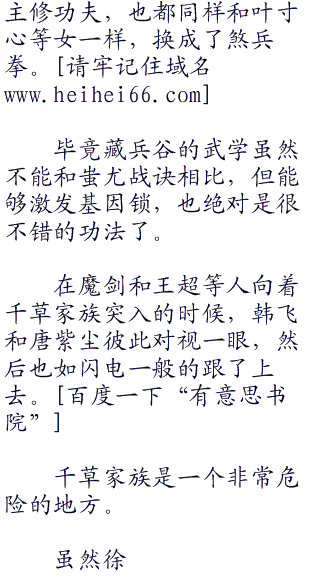 主修功夫，也都同样和叶寸
心等女一样，换成了煞兵
拳。[请牢记住域名
www.heihei66.com]
毕竟藏兵谷的武学虽然
不能和蚩尤战诀相比，但能
够激发基因锁，也绝对是很
不错的功法了。
在魔剑和王超等人向着
千草家族突入的时候，韩飞
和唐紫尘彼此对视一眼，然
后也如闪电一般的跟了上
去。[百度一下“有意思书
院”]
千草家族是一个非常危
险的地方。
虽然徐